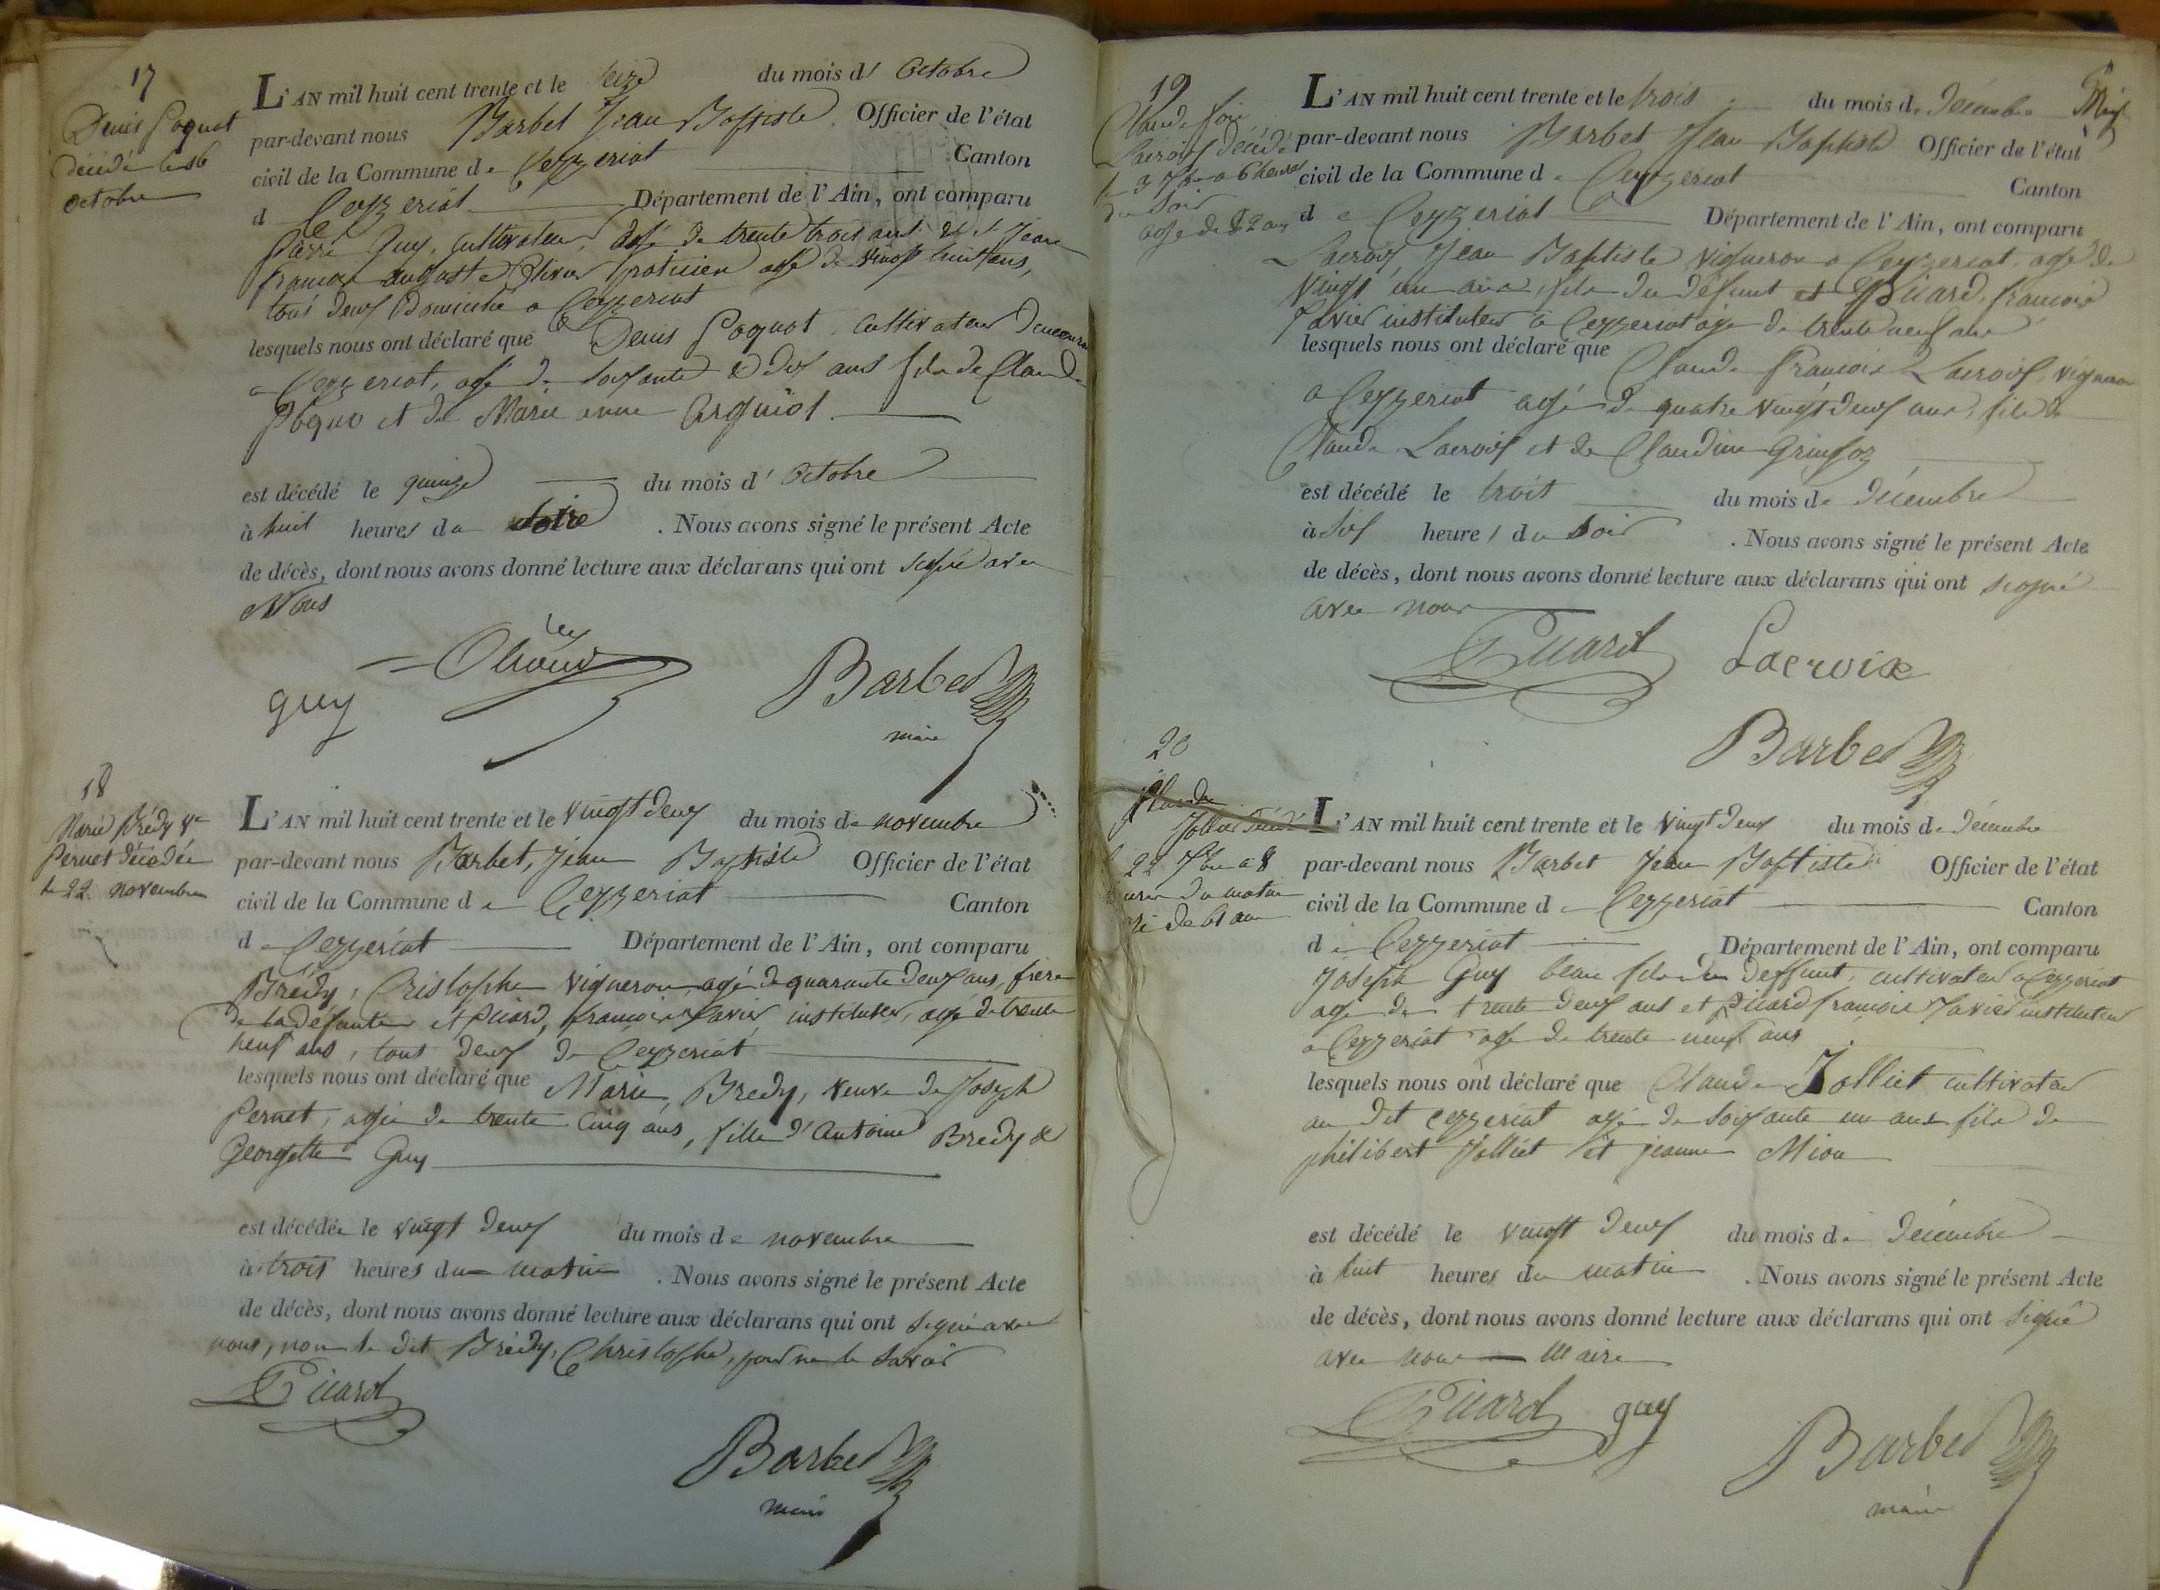 17
Denis Poquot
décédé le 16
octobre
L'AN mil huit cent trente et le seize du mois d' Octobre
par-devant nous Barbet Jean Baptiste Officier de l'état
civil de la Commune de Ceyzeriat Canton
d Ceyzeriat Département de l'Ain, ont comparu
Pierre Guy, cultivateur, âgé de trente trois ans et Jean
françois auguste Olivier praticien agé de vingt huit ans,
tous deux Domicilié a Ceyzeriat
lesquels nous ont déclaré que Denis Poquot cultivateur Demeurant
a Ceyzeriat, agé de soixante & dix ans fils de Claude
Poquo et de Marie anne
est décédé le quinze du mois d' Octobre
à huit heures du Soire . Nous avons signé le présent Acte
de décès, dont nous avons donné lecture aux déclarans qui ont signé avec
Nous
guy
Barbet
maire
18
Marie Brédy Ve
Pernet décédée
le 22 novembre
L'AN mil huit cent trente et le vingt deux du mois de novembre
par-devant nous Barbet, Jean Baptiste Officier de l'état
civil de la Commune de Ceyzeriat Canton
de Ceyzeriat Département de l'Ain, ont comparu
Brédy, Cristophe vigneron, agé de quarante deux ans, frère
de la défunte et Picard, françois Xavier instituteur, agé de trente
neuf ans, tous deux de Ceyzeriat
lesquels nous ont déclaré que Marie, Bredy, veuve de Joseph
Pernet, agée de trente cinq ans, fille d'Antoine Bredy &
Georgette Guy
est décédée le vingt deux du mois de novembre
à trois heures du matin . Nous avons signé le présent Acte
de décès, dont nous avons donné lecture aux déclarans qui ont signé avec
nous, non le dit Brédy, Christophe, pour ne le savoir
Picard
Barbet
maire
19
Claude fois
Lacroix décédé
le 3 Xbre a 6 heures
du Soir
agé de 82 ans
L'AN mil huit cent trente et le trois du mois de Décembre
par-devant nous Barbet Jean Baptiste Officier de l'état
civil de la Commune de Ceyzeriat Canton
de Ceyzeriat Département de l'Ain, ont comparu
Lacroix Jean Baptiste vigneron a Ceyzeriat, agé de
vingt un ans, fils du défunt et Picard, françois
Xavier instituteur à Ceyzeriat agé de trente neuf ans
lesquels nous ont déclaré que Claude François Lacroix, vigneron
a Ceyzeriat agé de quatre vingt deux ans, fils de
Claude Lacroix et de Claudine
est décédé le trois du mois de décembre
à six heures du soir . Nous avons signé le présent Acte
de décès, dont nous avons donné lecture aux déclarans qui ont signé
avec nous
Picard Lacroix
Barbet
20
Claude
Jolliet décédé
22 Xbre a 8
heures du matin
agé de 61 ans
L'AN mil huit cent trente et le vingt deux du mois de décembre
par-devant nous Barbet Jean Baptiste Officier de l'état
civil de la Commune de Ceyzeriat Canton
de Ceyzeriat Département de l'Ain, ont comparu
Joseph Guy beau fils du deffunt, cultivateur a Ceyzeriat
agé de trente deux ans et Picard françois Xavier instituteur
a Ceyzeriat agé de trente neuf ans
lesquels nous ont déclaré que Claude Jolliet cultivateur
au dit ceyzeriat agé de soixante un ans fils de
philibert Jolliet et jeanne Mion
est décédé le vingt deux du mois de décembre
à huit heures du matin . Nous avons signé le présent Acte
de décès, dont nous avons donné lecture aux déclarans qui ont signé
avec nous maire
Picard guy
Barbet
maire